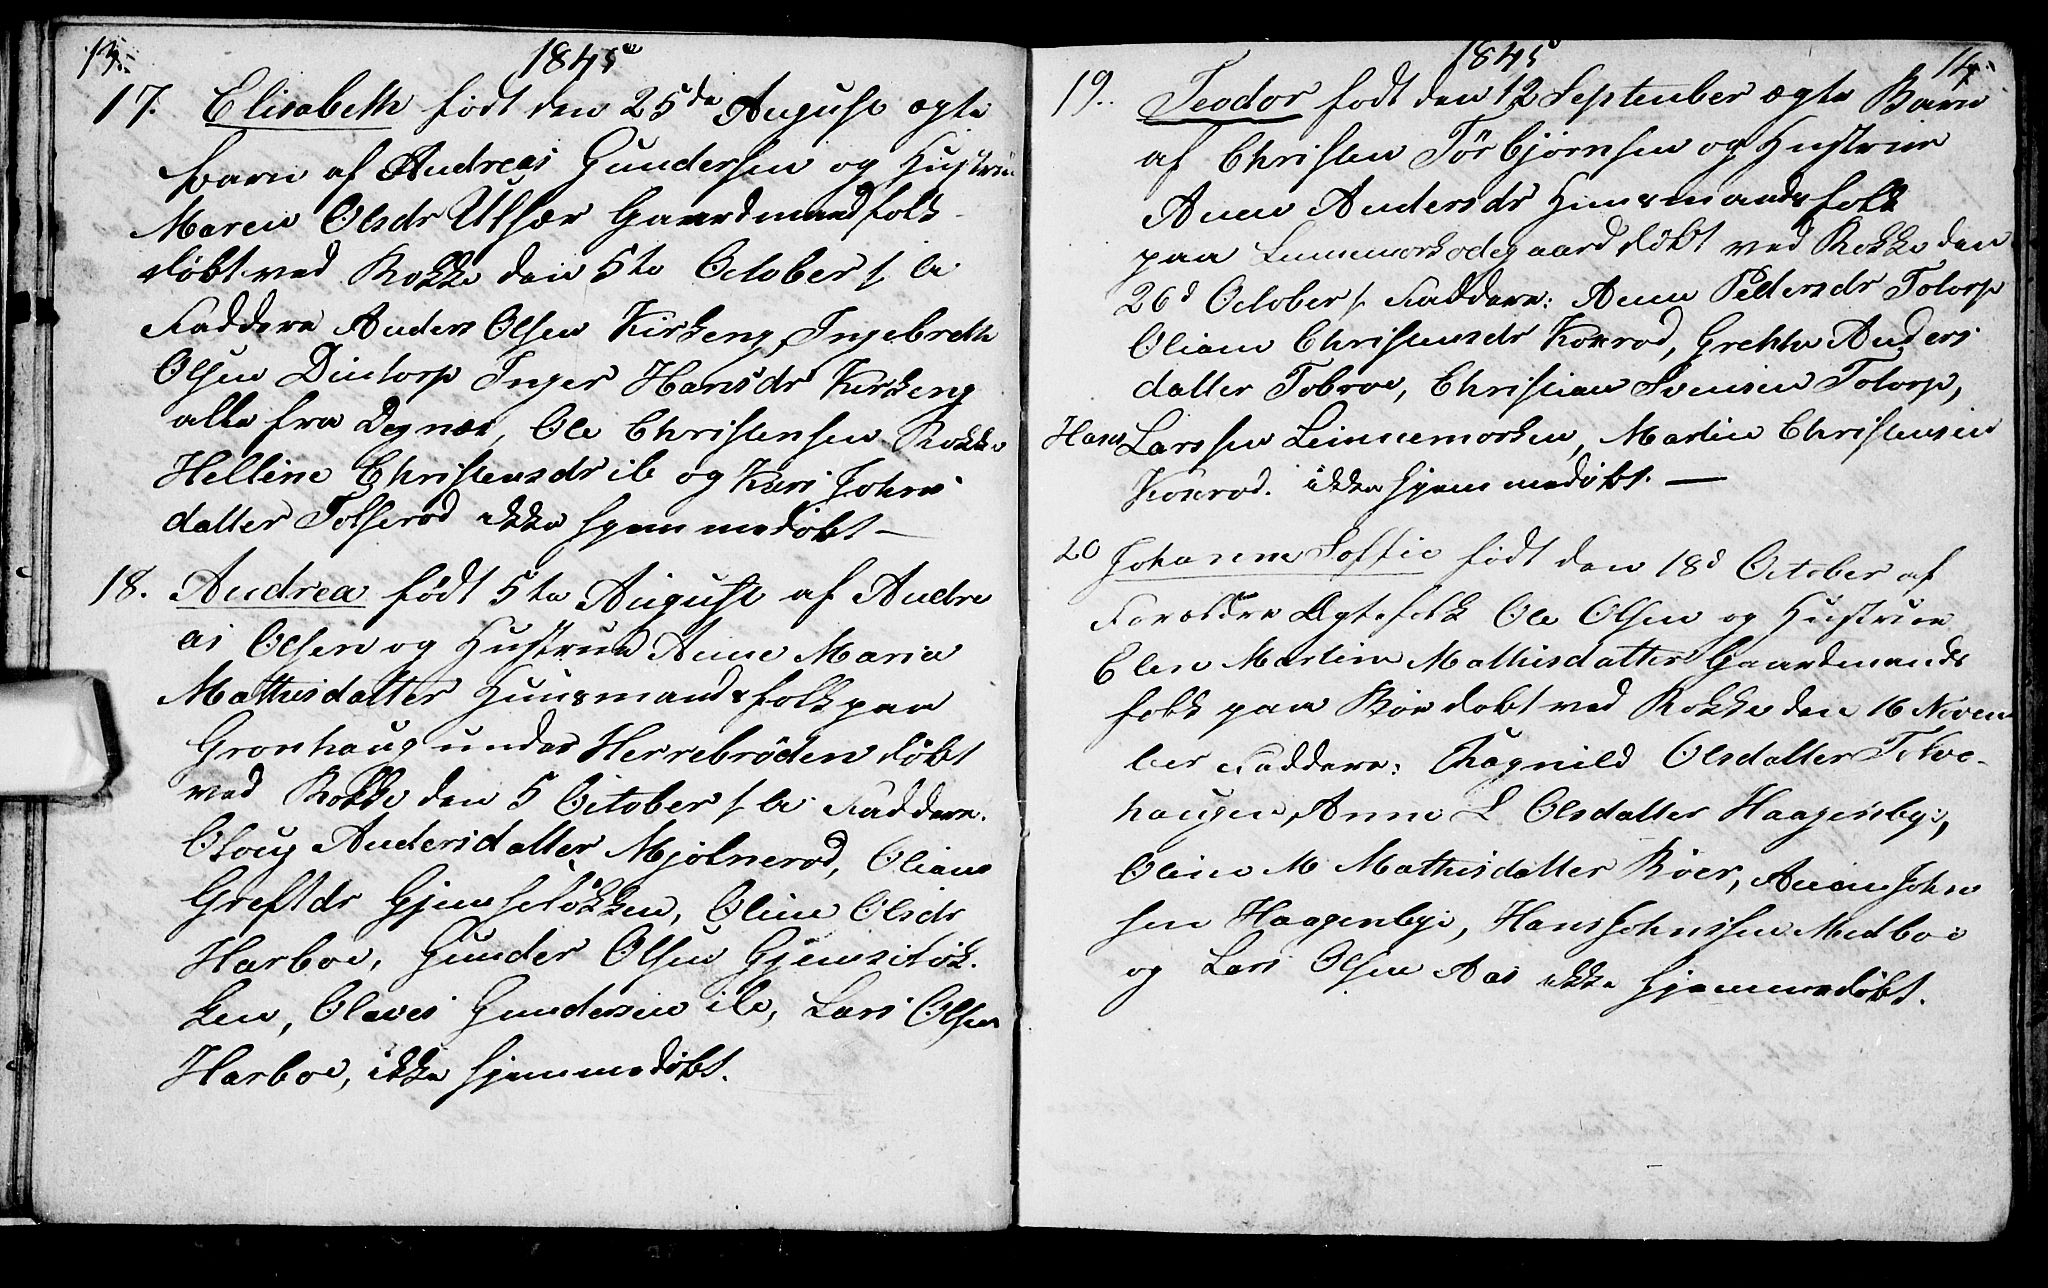 13.
1845
17. Elisabeth födt den 25de August ægte
barn af Andreas Gundersen og Hustrue
Maren Olsdr Ulsær Gaardmandfolk
döbt ved Rokke den 5te October
Faddere Anders Olsen Kirkeng, Ingebreth
Olsen Dintorp Inger Hansdr Kirkeng
alle fra Degnæs, Ole Christensen Rokke
Helline Christensdr ib og Kari Johns
datter Tolserod ikke hjemmedöbt —
18. Andrea födt 5te August af Andre
as Olsen og Hustrue Anne Maria
Mathisdatter Huusmandsfolk paa
Gronhaug under Herrebröden döbt
ved Rokke den 5 October Faddere.
Oloug Andersdatter Mjölnerod, Oliane
Greftdr Gjemselökken, Oline Olsdr
Harboe, Gunder Olsen Gjemselök-
ken, Olaves Gundersen ib, Lars Olsen
Harboe, ikke hjemmedöbt.
1845
14.
19. Teodor födt den 12 September ægte Barn
af Christen Törbjörnsen og Hustrue
Anne Andersdr Huusmandsfolk
paa Linnemorkodegaard döbt ved Rokke den
26d October Faddere: Anne Pedersdr Totorp
Oliane Christensdr Konrod, Grethe Anders
datter Tobroe, Christian Svensen Totorp,
Hans Larssen Leinnemorken, Martin Christensen
Konrod. ikke hjemmedöbt. —
20 Johanne Soffie födt den 18d October af
Forældre Ægtefolk Ole Olsen og Hustrue
Elen Martine Mathisdatter Gaardmands
folk paa Böe döbt ved Rokke den 16 Novem
ber Faddere: Ragnild Olsdatter
haugen, Anne L Olsdatter Haagenbye,
Oline M Mathisdatter Böer, Anton John
sen Haagenbye, Hans Johnssen Medboe
og Lars Olsen Aas ikke hjemmedöbt.